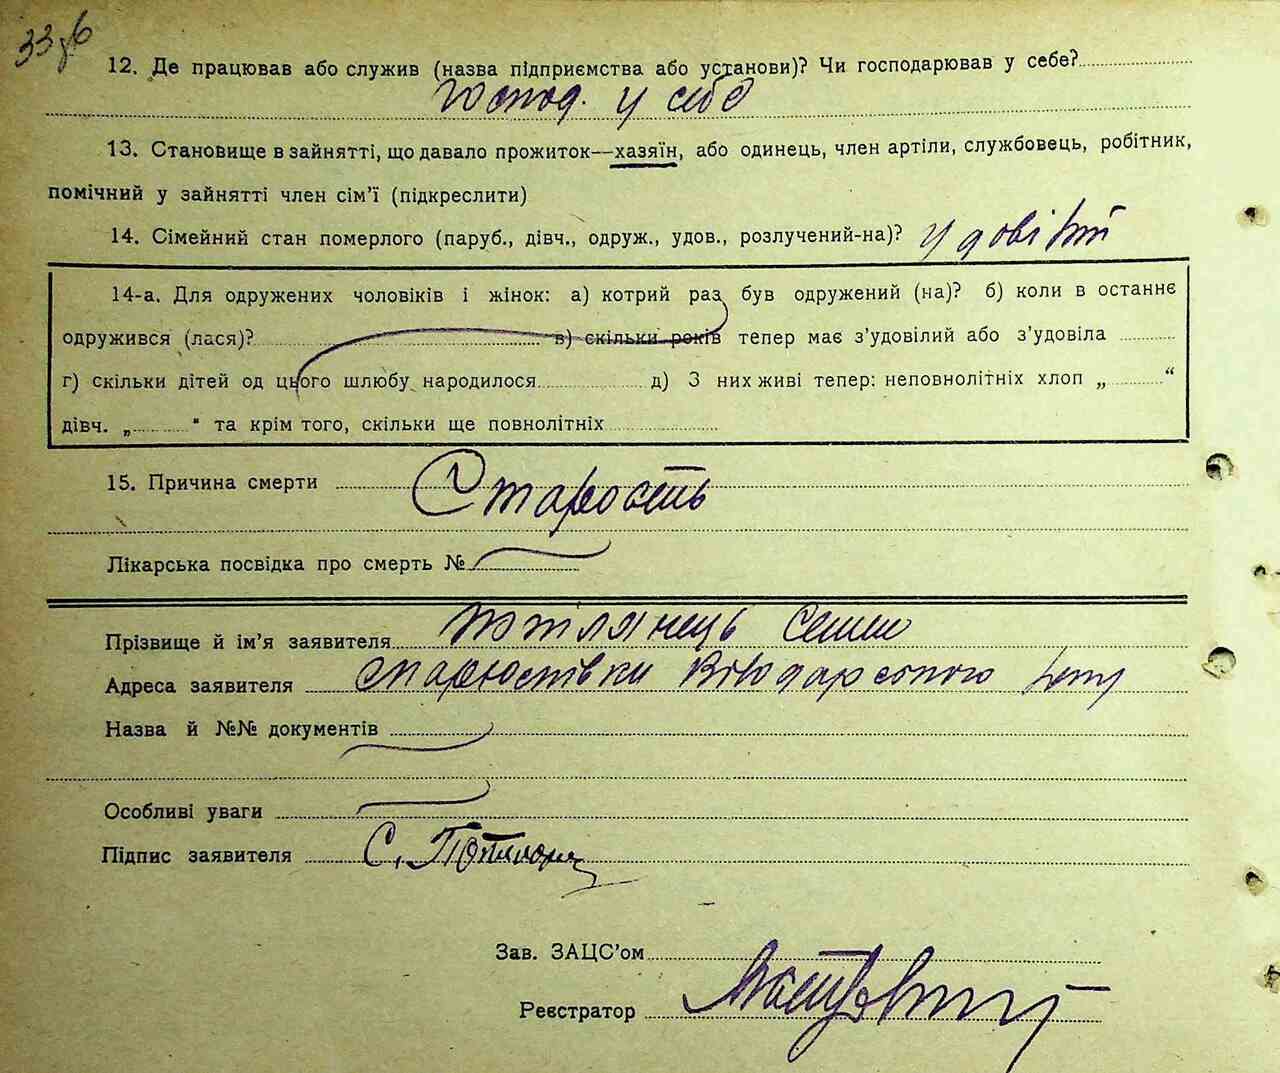 33
12. Де працював або служив (назва підприємства або установи)? Чи господарював у себе?
Господ. у себе
13. Становище в зайнятті, що давало прожиток—хазяїн, або одинець, член артіли, службовець, робітник,
помічний у зайнятті член сім'ї (підкреслити)
14. Сімейний стан померлого (паруб., дівч., одруж., удов., розлучений-на)?
14-а. Для одружених чоловіків і жінок: а) котрий раз був одружений (на)? б) коли в останнє
одружився (лася)? в) скільки років тепер має з'удовілий або з'удовіла
г) скільки дітей од цього шлюбу народилося д) З них живі тепер: неповнолітніх хлоп „ “
дівч. „ “ та крім того, скільки ще повнолітніх
15. Причина смерти Старость
Лікарська посвідка про смерть №
Прізвище й ім'я заявителя
Адреса заявителя
Назва й №№ документів
Особливі уваги
Підпис заявителя С.
Зав. ЗАЦС'ом
Реєстратор